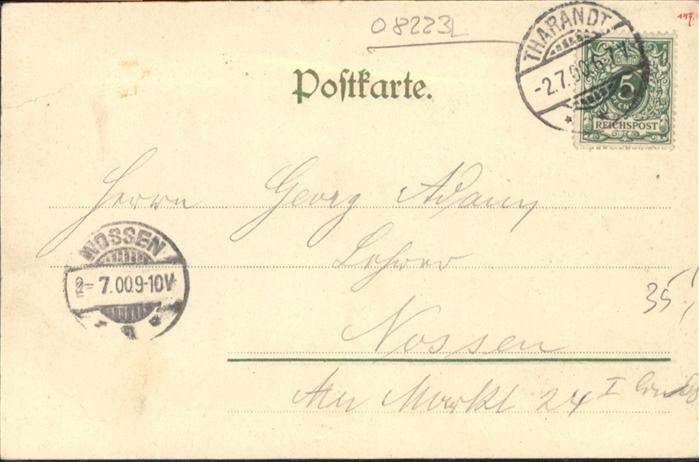 08223L
THARANDT
-2.7.00.6-7V.
5
REICHSPOST
Postkarte.
Herrn Georg Adam
Lehrer
NOSSEN
7.00.9-10V
35,
Nossen
Am Markt 24 I